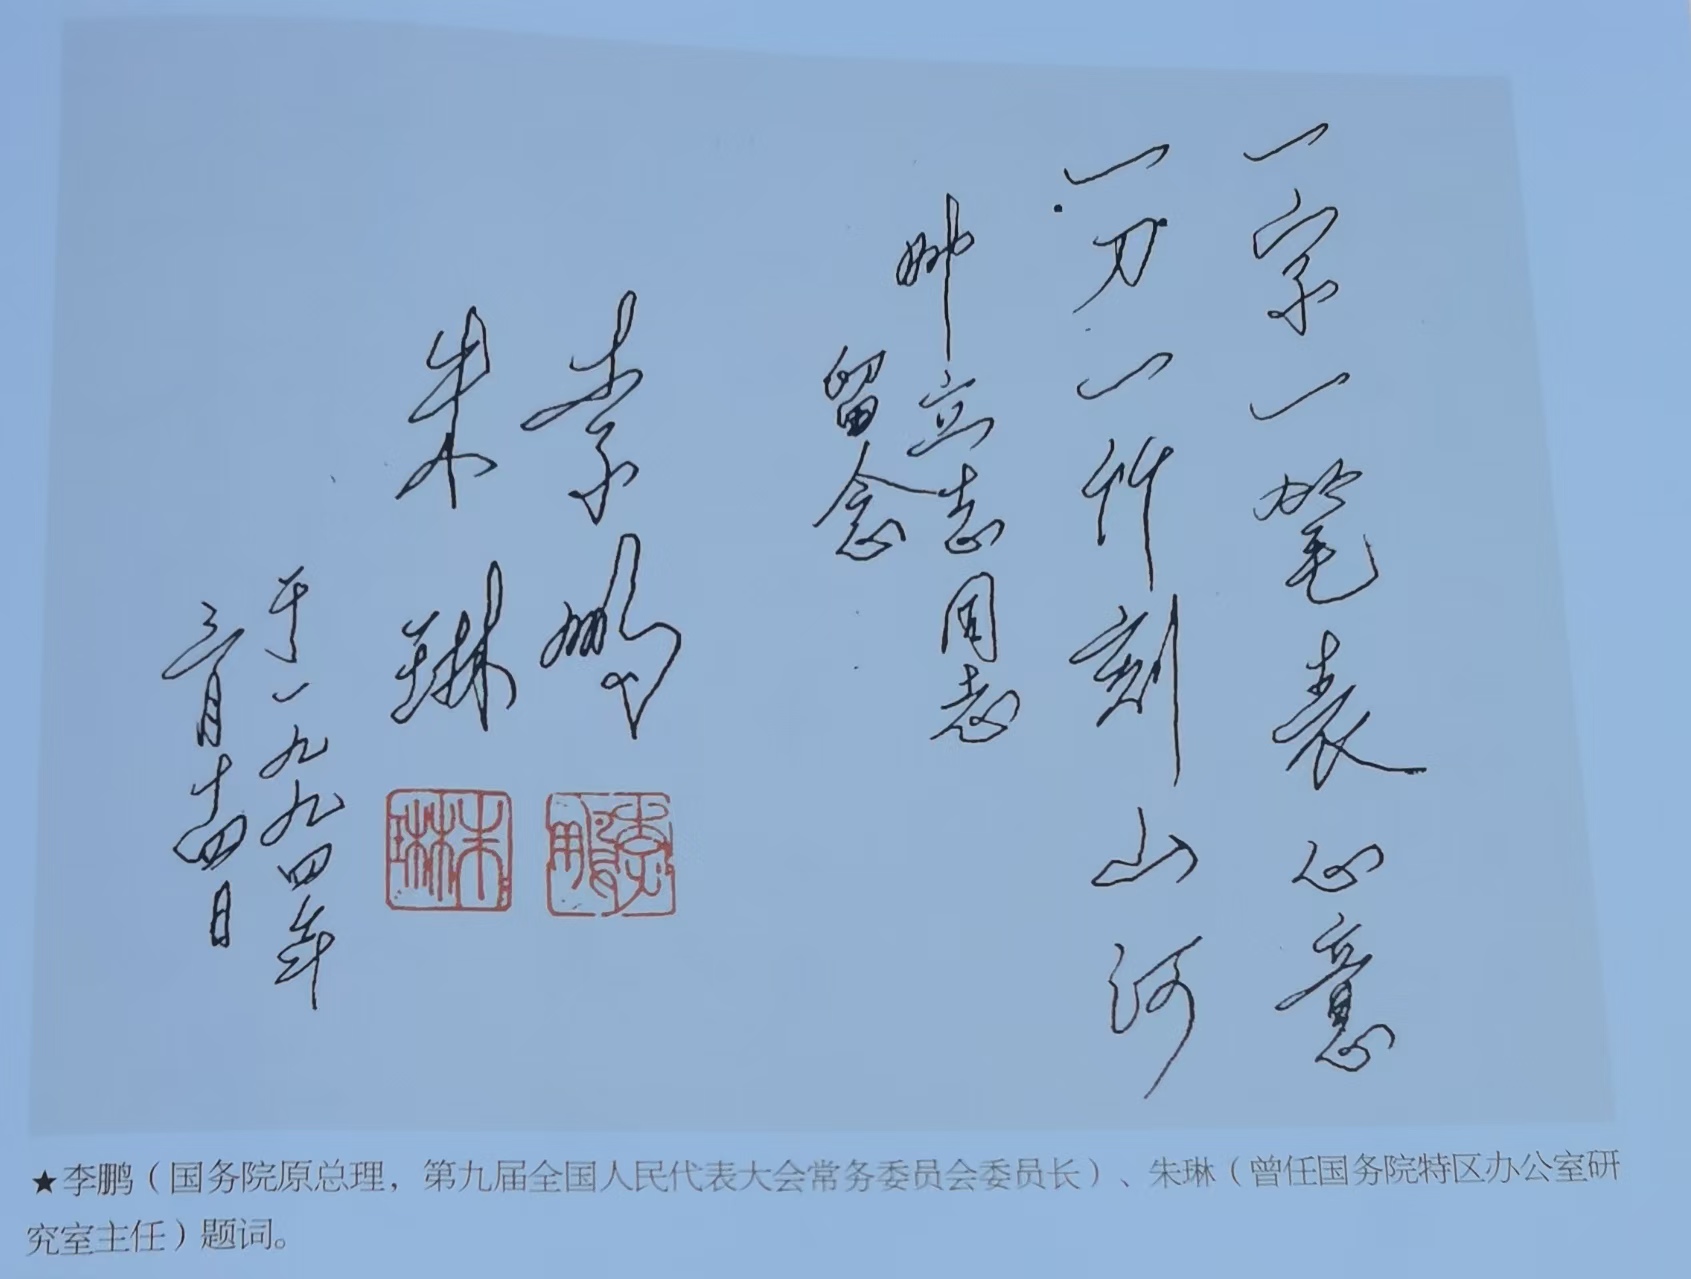 一字一笔表心意
一刀一竹刻山河
帅立志同志
留念
李鹏
朱琳
于一九九四年
三月十四日
李鹏
朱琳
★李鹏（国务院原总理，第九届全国人民代表大会常务委员会委员长）、朱琳（曾任国务院特区办公室研
究室主任）题词。